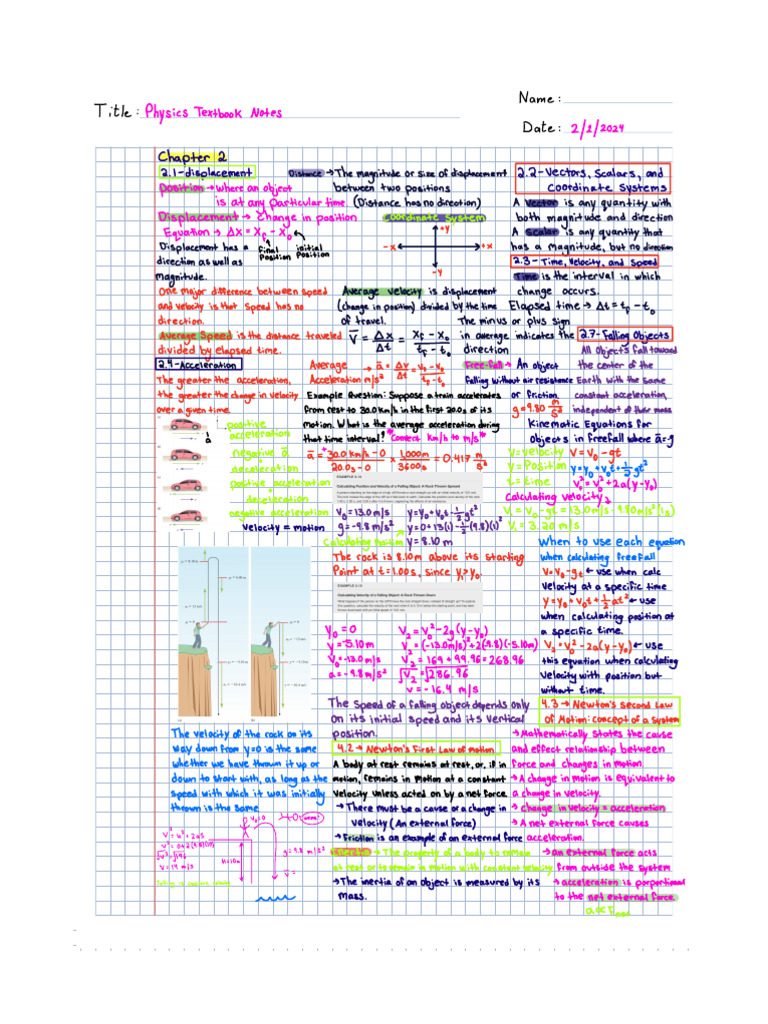 Title: Physics Textbook Notes
Name:
Date: 2/1/2024
Chapter 2
2.1-displacement
Position → where an object
is at any particular time.
Displacement → Change in position
Equation → Δx = x_f - x_0
Displacement has a
direction as well as
magnitude.
final
Position
initial
Position
One major difference between speed
and velocity is that speed has no
direction.
Average Speed is the distance traveled
divided by elapsed time.
2.4-Acceleration
The greater the acceleration,
the greater the change in velocity
over a given time.
positive
acceleration
negative a
deceleration
positive acceleration
deceleration
negative acceleration
velocity = motion
Distance → The magnitude or size of displacement
between two positions
(Distance has no direction)
Coordinate System
+y
-x
+x
-y
Average velocity is displacement
(change in position) divided by the time
of travel.
V̄ = Δx/Δt = (x_f - x_0)/(t_f - t_0)
The minus or plus sign
in average indicates the
direction
Average
Acceleration m/s²
→ ā = Δv/Δt = (v_f - v_0)/(t_f - t_0)
Example Question: Suppose a train accelerates
from rest to 30.0km/h in the first 20.0s of its
motion. What is the average acceleration during
that time interval? *Convert km/h to m/s*
ā = (30.0 km/h - 0)/(20.0s - 0) × 1,000m/3600s = 0.417 m/s²
EXAMPLE 2.14
Calculating Position and Velocity of a Falling Object: A Rock Thrown Upward
V_0 = 13.0 m/s
g = -9.8 m/s²
y = y_0 + v_0t - 1/2gt²
y = 0 + 13(1) - 1/2(9.8)(1)²
Calculating Position
y = 8.10 m
The rock is 8.10m above its starting
Point at t = 1.00s, since y_1 > y_0
Calculating Velocity of a Falling Object: A Rock Thrown Down
y_0 = 0
y = -5.10m
V_0 = -13.0 m/s
a = -9.8 m/s²
V² = V_0² - 2g(y - y_0)
V² = (-13.0m/s)² + 2(9.8)(-5.10m)
V² = 169 + 99.96 = 268.96
√V² = √286.96
v = -16.4 m/s
The Speed of a falling object depends only
on its initial speed and its vertical
position.
4.2 → Newton's First Law of motion
A body at rest remains at rest, or, if in
motion, remains in motion at a constant
velocity unless acted on by a net force.
→ There must be a cause or a change in
velocity (An external force)
→ Friction is an example of an external force
Inertia → The property of a body to remain
at rest or to remain in motion with constant velocity
→ The inertia of an object is measured by its
mass.
2.2-Vectors, Scalars, and
Coordinate Systems
A Vector is any quantity with
both magnitude and direction
A Scalar is any quantity that
has a magnitude, but no direction
2.3 - Time, Velocity, and Speed
Time is the interval in which
change occurs.
Elapsed time → Δt = t_f - t_0
2.7-Falling Objects
All objects fall toward
the center of the
Earth with the same
constant acceleration,
independent of their mass
Free-fall → An object
falling without air resistance
or friction.
g = 9.80 m/s²
Kinematic Equations for
objects in freefall where ā=-g
V = velocity
y = Position
t = time
V = V_0 - gt
y = y_0 + v_0t + 1/2gt²
V² = V_0² + 2a(y - y_0)
Calculating velocity
V = V_0 - gt = 13.0m/s - 9.80m/s²(1s)
V = 3.20 m/s
When to use each equation
when calculating freefall
V = V_0 - gt ← use when calc
velocity at a specific time
y = y_0 + v_0t + 1/2at² ← use
when calculating position at
a specific time.
V² = V_0² - 2a(y - y_0) ← use
this equation when calculating
velocity with position but
without time.
4.3 → Newton's second Law
of Motion: concept of a system
→ Mathematically states the cause
and effect relationship between
force and changes in motion
→ A change in motion is equivalent to
a change in velocity.
→ change in velocity = acceleration
→ A net external force causes
acceleration.
→ an external force acts
from outside the system
→ acceleration is proportional
to the net external force.
The velocity of the rock on its
way down from y=0 is the same
whether we have thrown it up or
down to start with, as long as the
speed with which it was initially
thrown is the same
V_0 = 0
H=10m
g = 9.8 m/s²
v = 14 m/s